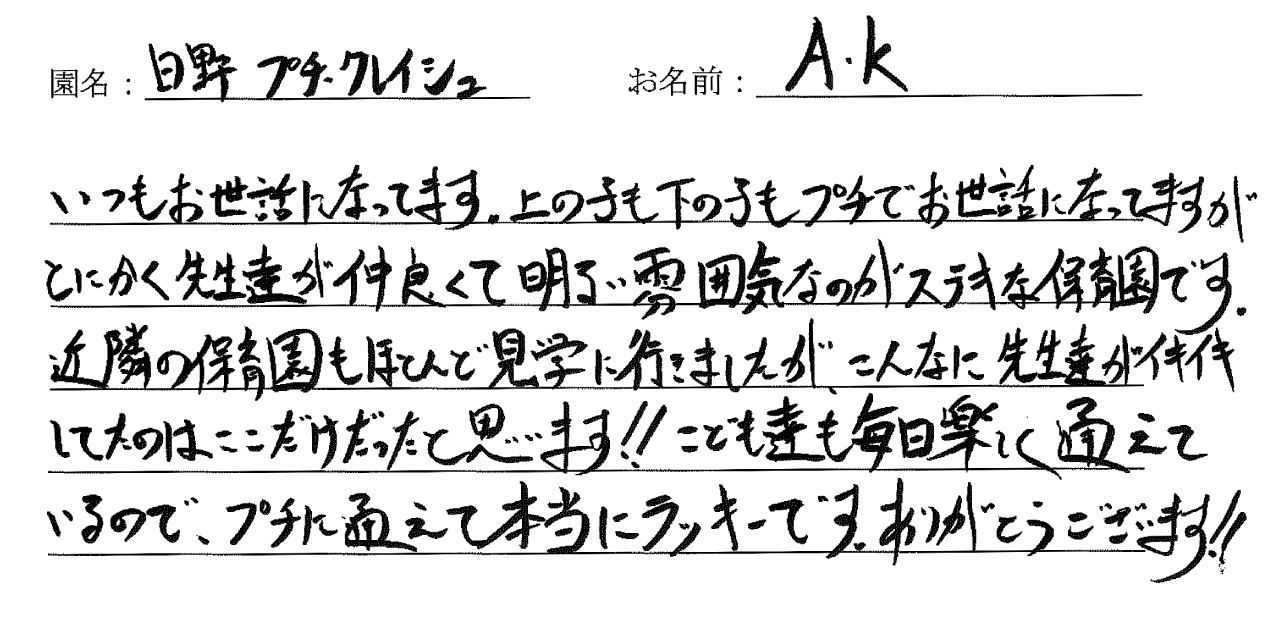 園名：日野 プチ・クレイシュ お名前：A・K
いつもお世話になってます。上の子も下の子もプチでお世話になってますが
とにかく先生達が仲良くて明るい雰囲気なのがステキな保育園です。
近隣の保育園もほとんど見学に行きましたが、こんなに先生達がイキイキ
してたのはここだけだったと思います!! こども達も毎日楽しく通えて
いるので、プチに通えて本当にラッキーです。ありがとうございます!!